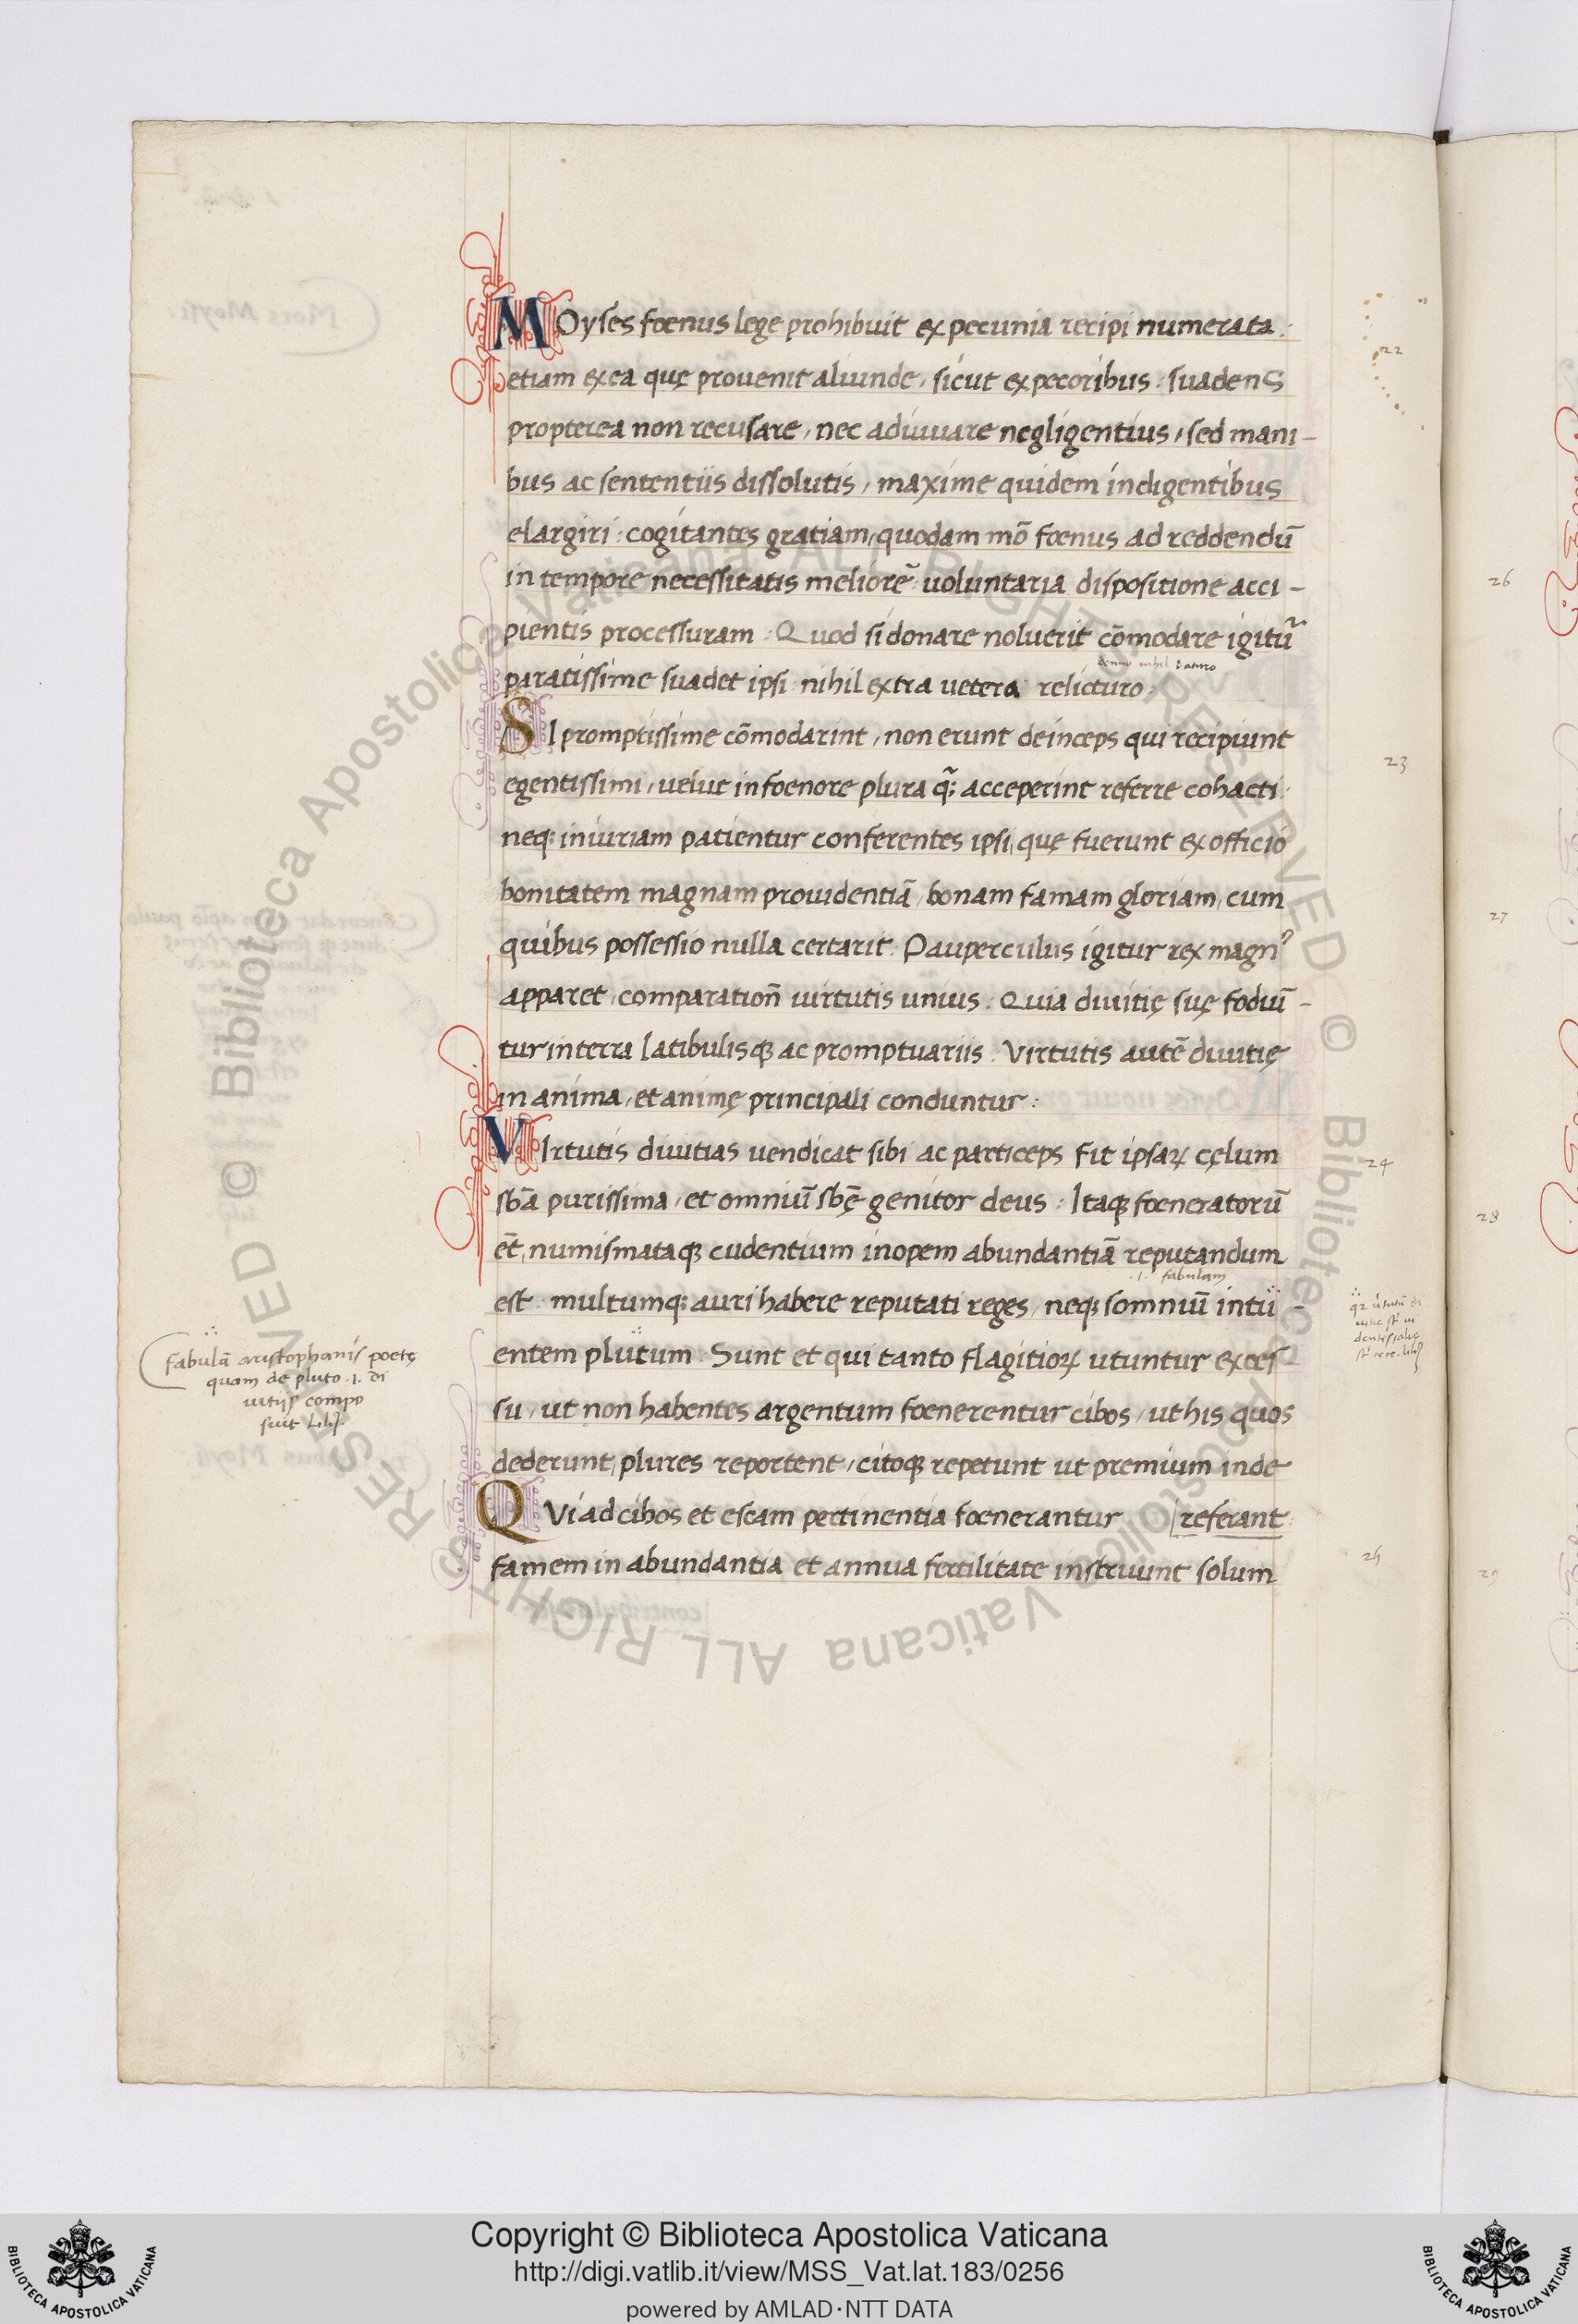 MOyses foenus lege prohibuit ex pecunia recipi numerata:
etiam ex ea quę prouenit aliunde, sicut ex pecoribus: suadens
propterea non recusare, nec adiuuare negligentius, sed mani-
bus ac sententiis dissolutis, maxime quidem indigentibus
elargiri: cogitantes gratiam, quodam mō foenus ad reddendū
in tempore necessitatis meliorē uoluntaria dispositione acci-
pientis processuram: Quod si donare noluerit cōmodare igitur̃
denuo nihil daturo
paratissime suadet ipsi nihil extra uetera relicturo:
SI promptissime cōmodarint, non erunt deinceps qui recipiunt
22
23
egentissimi, ueluc in foenore plura q̃; acceperint referre cohacti:
neq; iniuriam patientur conferentes ipsi, quę fuerunt ex officio
bonitatem magnam prouidentiā, bonam famam gloriam, cum
quibus possessio nulla certarit. Pauperculus igitur rex magnꝰ
apparet, comparatioñ uirtutis unius: Quia diuitię suę fodiū-
tur in terra latibulisq; ac promptuariis. Virtutis autē diuitię
in anima, et animę principali conduntur:
VIrtutis diuitias uendicat sibi ac particeps fit ipsaꝝ cęlum
24
sbā purissima, et omniū sbę̄ genitor deus: Itaq; foeneratorū
ēt, numismataq; cudentium inopem abundantiā reputandum
.i. fabulam
est: multumq; auri habere reputati reges, neq; somniū intu-
entem plutum: Sunt et qui tanto flagitioꝝ utuntur exces
su, ut non habentes argentum foenerentur cibos, ut his quos
dederunt, plures reportent, citoq; repetunt ut premium inde
QVi ad cibos et escam pertinentia foenerantur referant:
famem in abundantia et annua fertilitate instruunt solum
25
fabulā aristophanis poetę
quam de pluto .i. di
uitijs compo
suit Lilꝰ
26
27
28
29
RESERVED © Biblioteca Apostolica Vaticana ALL RIGHTS RESERVED © Biblioteca Apostolica Vaticana ALL RIGHTS
Copyright © Biblioteca Apostolica Vaticana
http://digi.vatlib.it/view/MSS_Vat.lat.183/0256
powered by AMLAD·NTT DATA
BIBLIOTECA APOSTOLICA VATICANA
BIBLIOTECA APOSTOLICA VATICANA